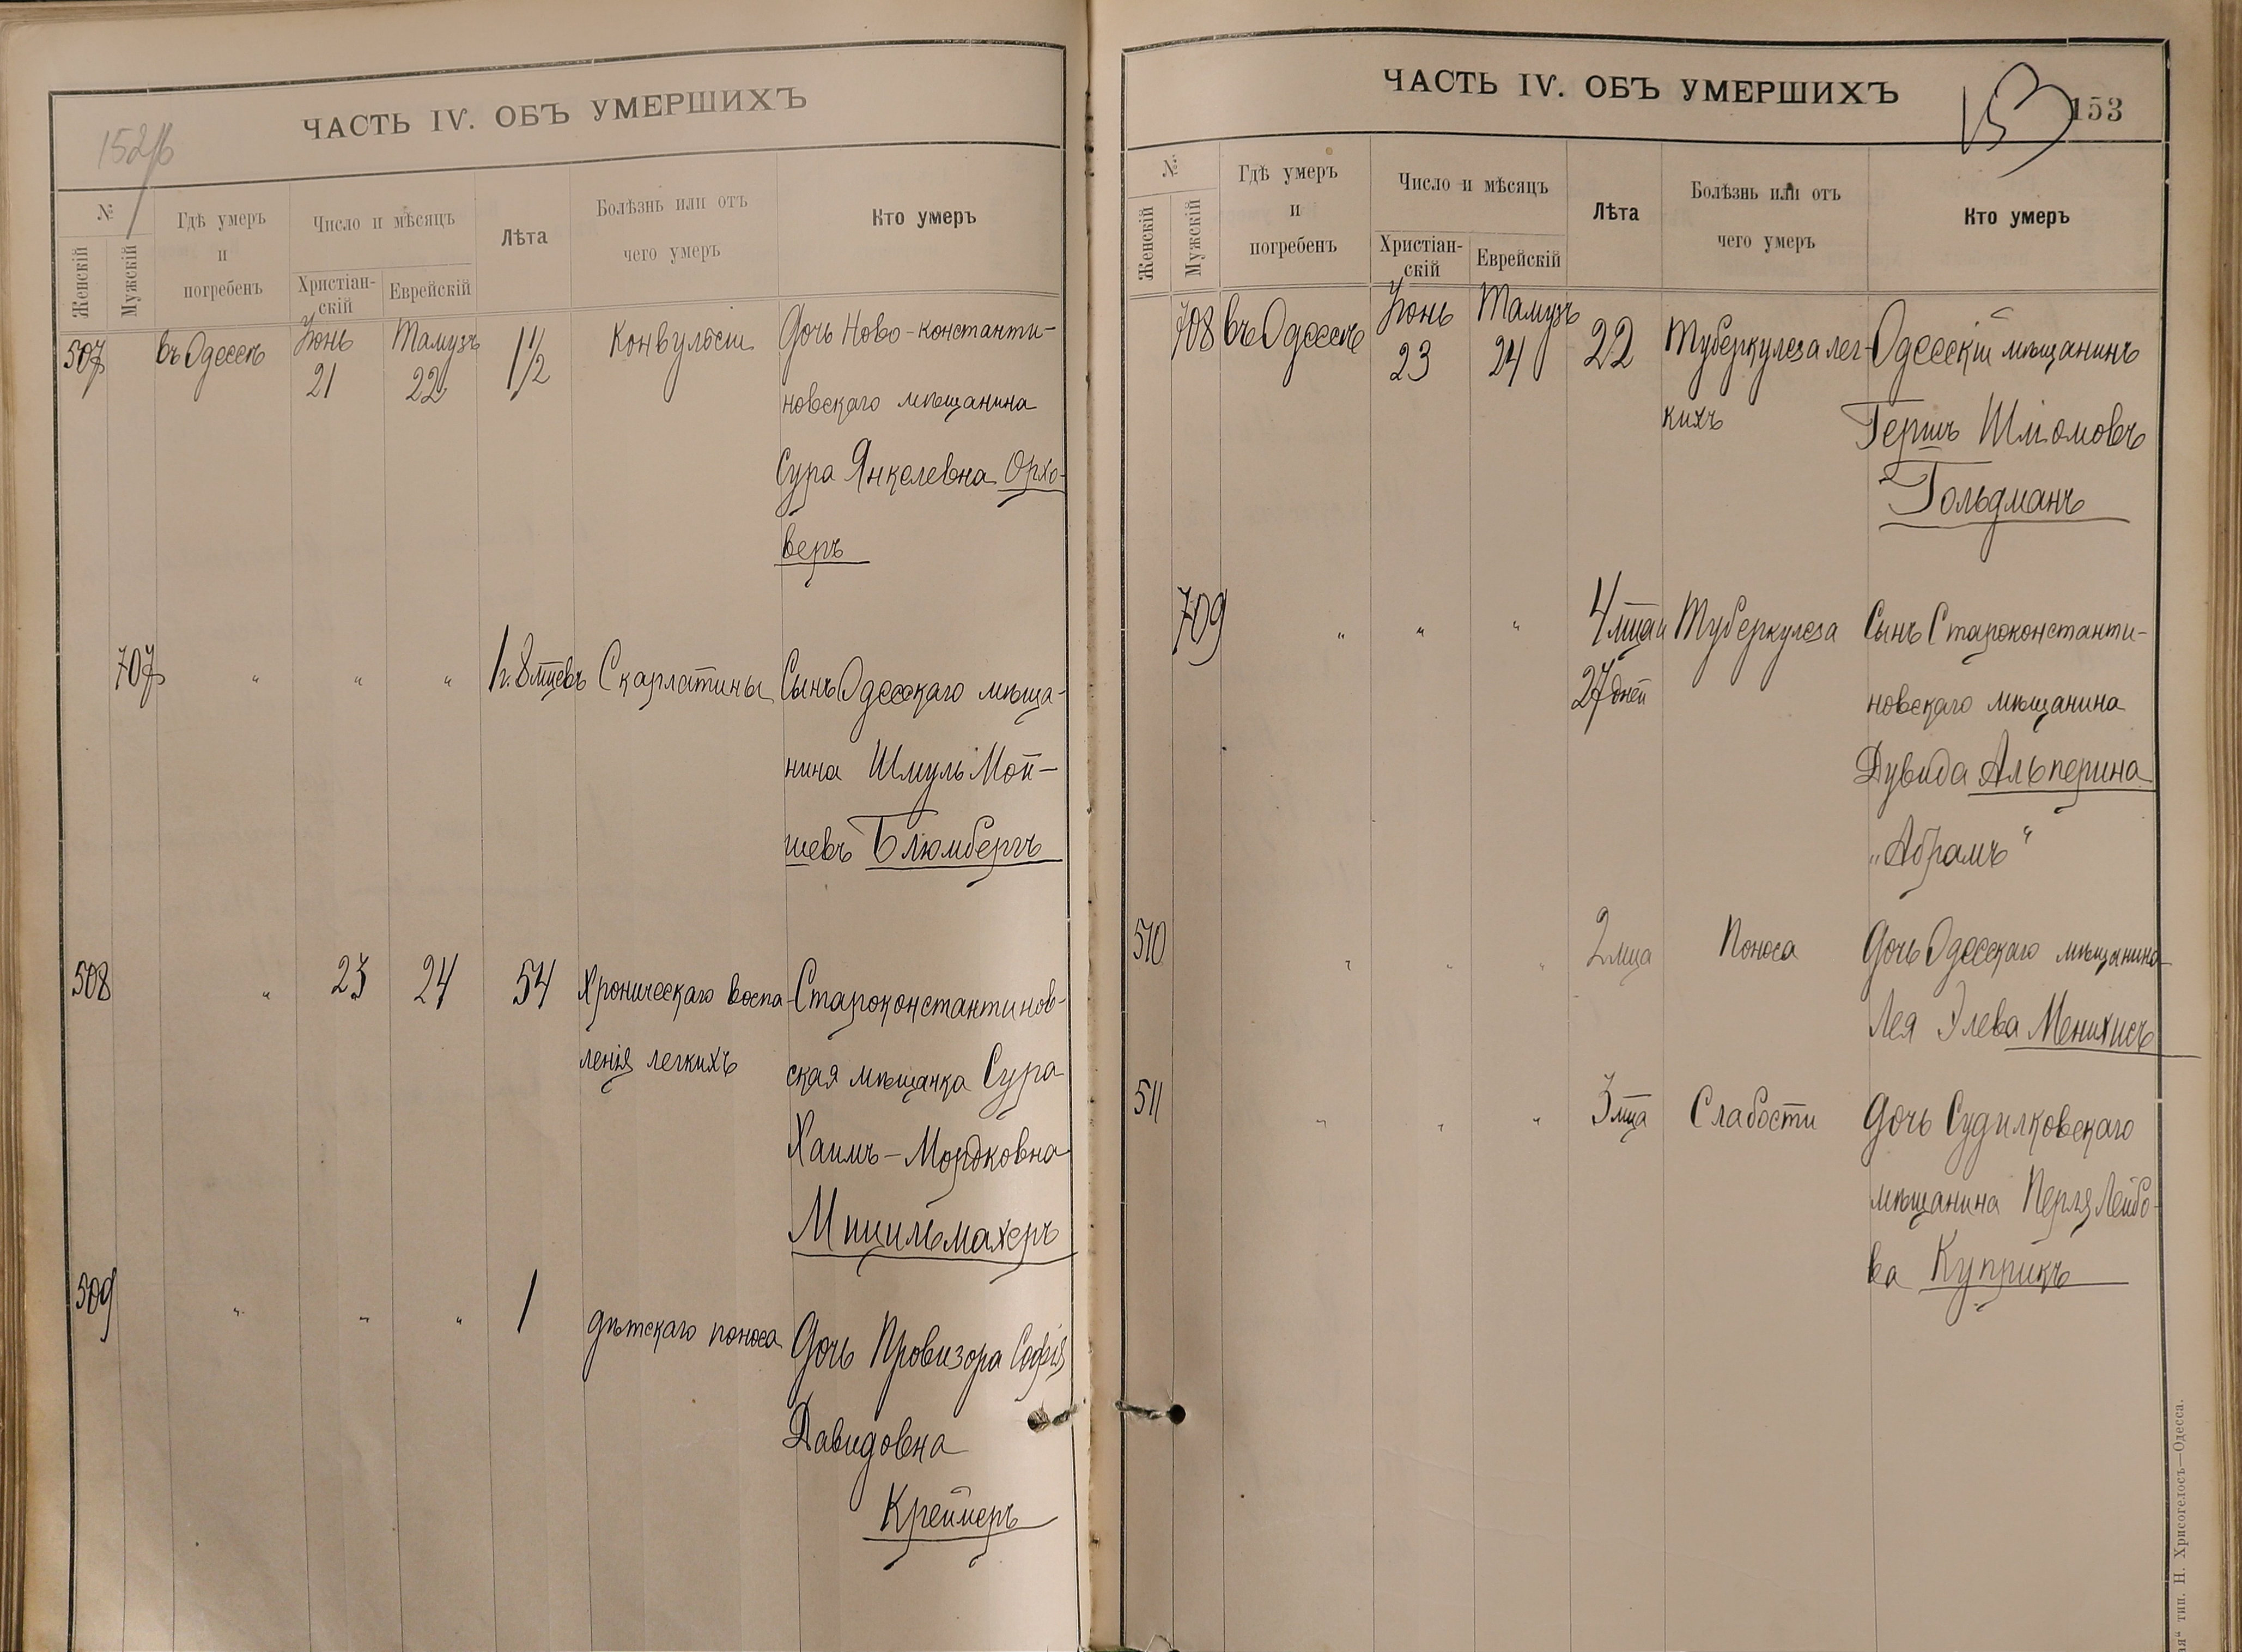 152 об
ЧАСТЬ IV. ОБЪ УМЕРШИХЪ
№
Женскій
Мужскій
Гдѣ умеръ
и
погребенъ
Число и мѣсяцъ
Христіан-
скій
Еврейскій
Лѣта
Болѣзнь или отъ
чего умеръ
Кто умеръ
507 въ Одессѣ Іюнь 21 Тамузъ 22 1 1/2 Конвульсіи Дочь Ново-константи-
новскаго мѣщанина
Сура Янкелевна Орхо-
веръ
707 " " " 1 г. 8 мцевъ Скарлатины Сынъ Одесскаго мѣща-
нина Шмуль Мой-
шевъ Блюмбергъ
508 " 23 24 54 Хроническаго воспа- Староконстантинов-
ленія легкихъ ская мѣщанка Сура
Хаимъ-Мордковна
Мицильмахеръ
509 " " " 1 дѣтскаго поноса Дочь Провизора Софія
Давидовна
Креймеръ
ЧАСТЬ IV. ОБЪ УМЕРШИХЪ
153
153
№
Женскій
Мужскій
Гдѣ умеръ
и
погребенъ
Число и мѣсяцъ
Христіан-
скій
Еврейскій
Лѣта
Болѣзнь или отъ
чего умеръ
Кто умеръ
708 въ Одессѣ Іюнь 23 Тамузъ 24 22 Туберкулеза лег- Одесскій мѣщанинъ
кихъ Гершъ Шліомовъ
Гольдманъ
709 " " " 4 мца и Туберкулеза Сынъ Староконстанти-
27 дней новскаго мѣщанина
Дувида Альперина
„Абрамъ“
510 " " " 2 мца Поноса Дочь Одесскаго мѣщанина
Лея Элева Менихисъ
511 " " " 3 мца Слабости Дочь Судилковскаго
мѣщанина Перля Лейбо-
ва Куприкъ
тип. Н. Хрисогелосъ—Одесса.